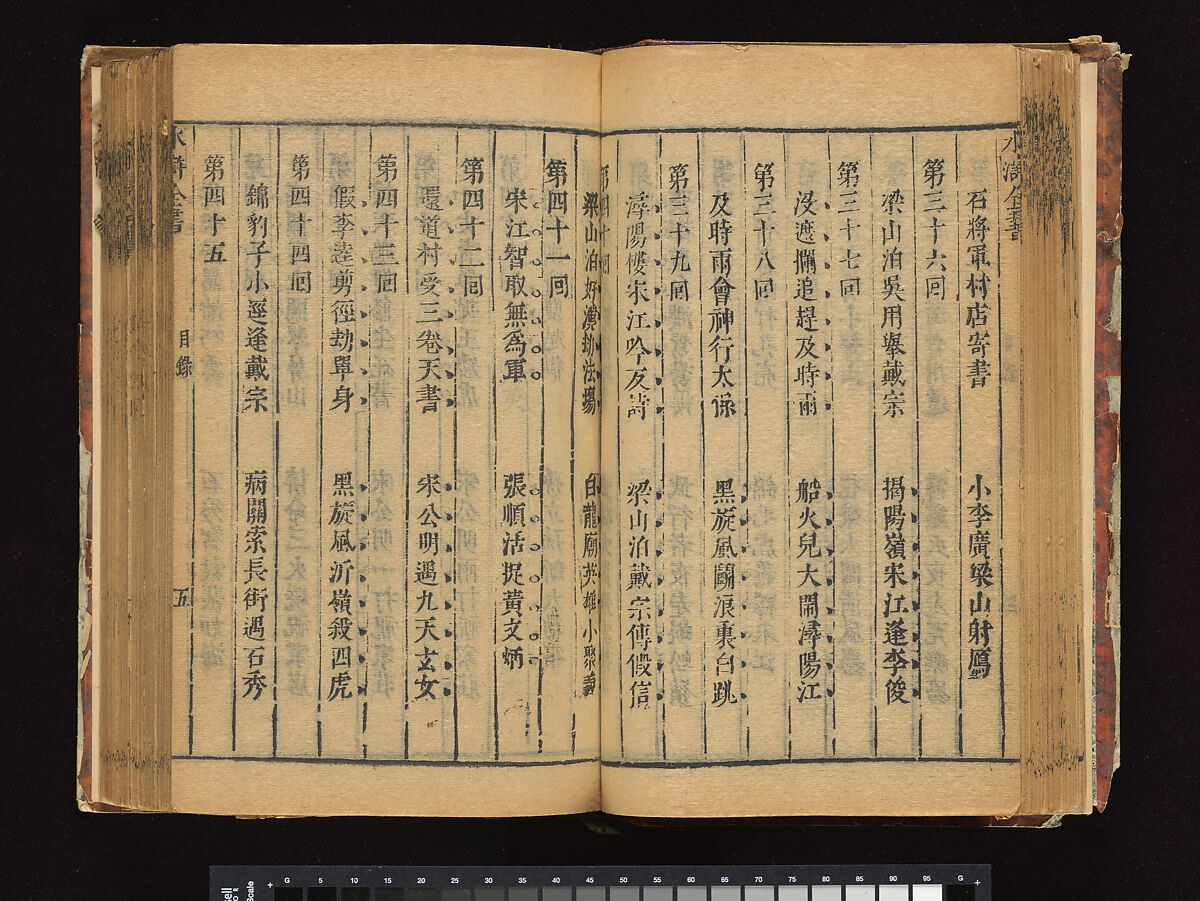 水滸全書
石將軍村店寄書 小李廣梁山射鴈
第三十六回
梁山泊吳用舉戴宗 揭陽嶺宋江逢李俊
第三十七回
没遮攔追趕及時雨 船火兒大鬧潯陽江
第三十八回
及時雨會神行太保 黑旋風鬭浪裏白跳
第三十九回
潯陽樓宋江吟反詩 梁山泊戴宗傳假信
第四十回
梁山泊好漢劫法場 白龍廟英雄小聚義
第四十一回
宋江智取無爲軍 張順活捉黃文炳
第四十二回
還道村受三卷天書 宋公明遇九天玄女
第四十三回
假李逵剪徑劫單身 黑旋風沂嶺殺四虎
第四十四回
錦豹子小逕逢戴宗 病關索長街遇石秀
第四十五
水滸全書 目錄 五
G 5 10 15 20 25 30 35 40 45 50 55 60 65 70 75 80 85 90 95 G